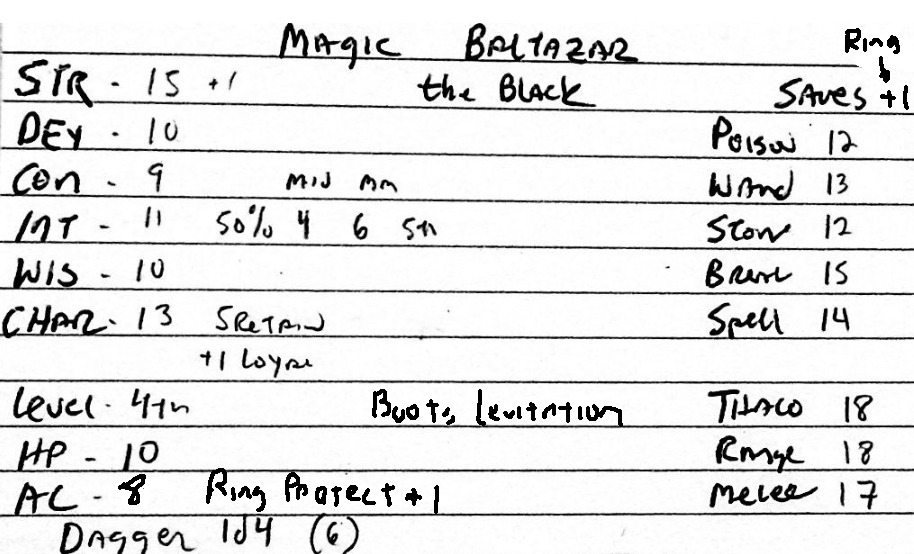 Magic Baltazar Ring
STR - 15 +1 the Black Saves +1
DEX - 10 Poison 12
CON - 9 MIN Wand 13
INT - 11 50% 4 6 5th Stone 12
WIS - 10 Breath 15
CHAR - 13 5 Retain Spell 14
+1 Loyal
Level - 4th Boots Levitation THACO 18
HP - 10 Range 18
AC - 8 Ring Protect +1 Melee 17
Dagger 1d4 (6)